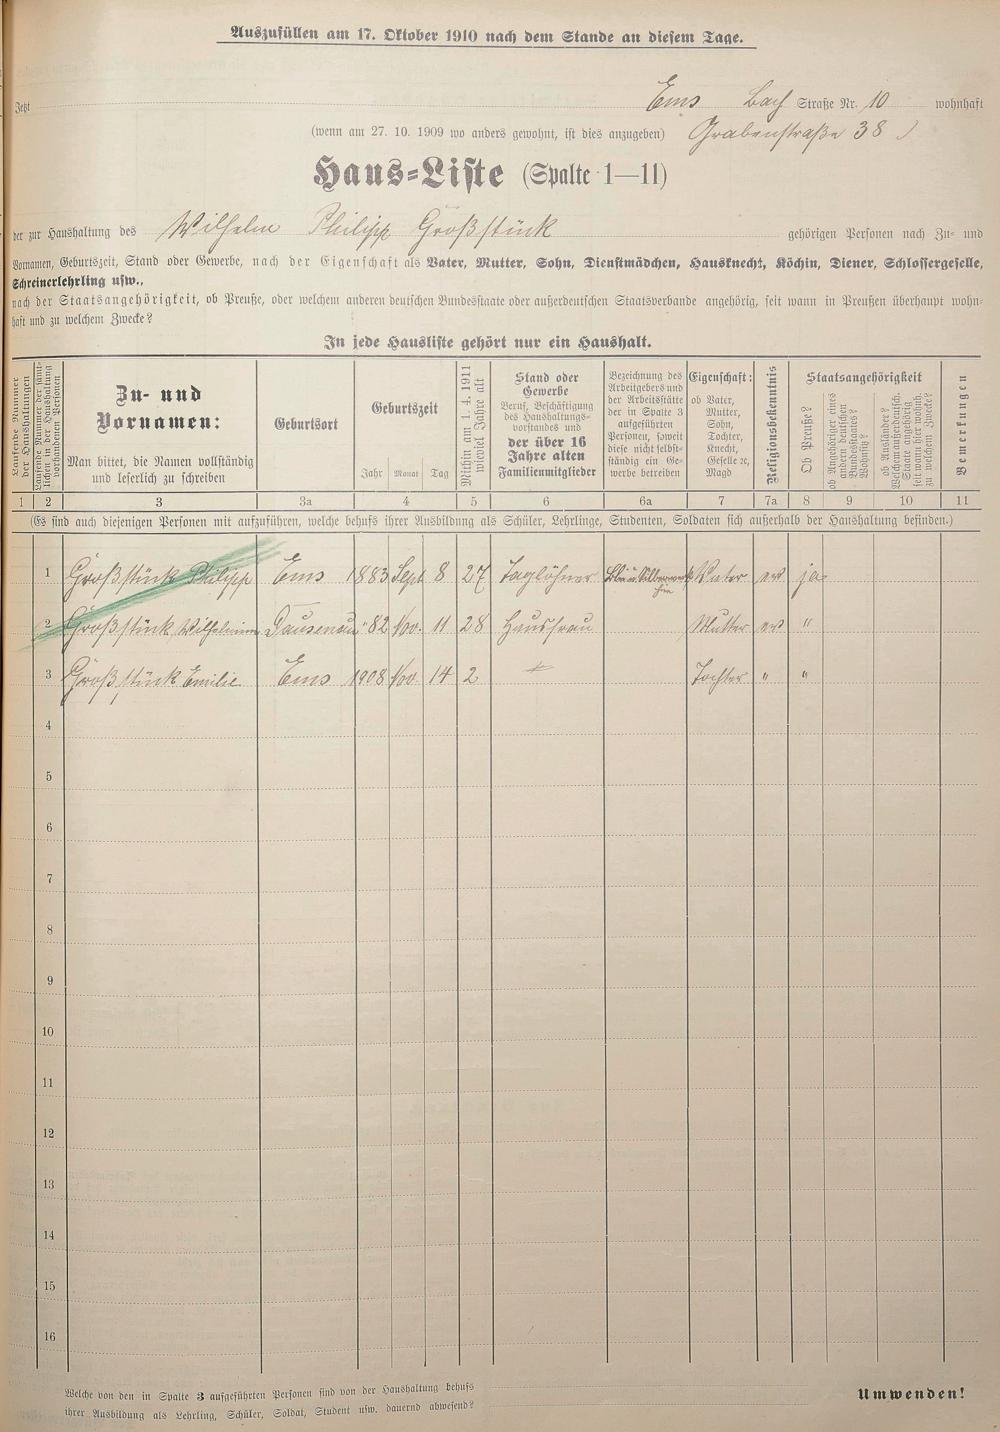 Auszufüllen am 17. Oktober 1910 nach dem Stande an diesem Tage.
Jetzt Ems Bach Straße Nr. 10 wohnhaft
(wenn am 27. 10. 1909 wo anders gewohnt, ist dies anzugeben) Grabenstraße 38
Haus-Liste (Spalte 1—11)
der zur Haushaltung des Wilhelm Philipp Großstück gehörigen Personen nach Zu- und
Vornamen, Geburtszeit, Stand oder Gewerbe, nach der Eigenschaft als Vater, Mutter, Sohn, Dienstmädchen, Hausknecht, Köchin, Diener, Schlossergeselle,
Schreinerlehrling usw.,
nach der Staatsangehörigkeit, ob Preuße, oder welchem anderen deutschen Bundesstaate oder außerdeutschen Staatsverbande angehörig, seit wann in Preußen überhaupt wohn-
haft und zu welchem Zwecke?
In jede Hausliste gehört nur ein Haushalt.
Laufende Nummer
der Haushaltungen
Laufende Nummer der sämt-
lichen in der Haushaltung
vorhandenen Personen
Zu- und
Vornamen:
Man bittet, die Namen vollständig
und leserlich zu schreiben
Geburtsort
Geburtszeit
Jahr Monat Tag
Mithin am 1. 4. 1911
wieviel Jahre alt
Stand oder
Gewerbe
Beruf, Beschäftigung
des Haushaltungs-
vorstandes und
der über 16
Jahre alten
Familienmitglieder
Bezeichnung des
Arbeitgebers und
der Arbeitsstätte
der in Spalte 3
aufgeführten
Personen, soweit
diese nicht selbst-
ständig ein Ge-
werbe betreiben
Eigenschaft:
ob Vater,
Mutter,
Sohn,
Tochter,
Knecht,
Geselle ꝛc,
Magd
Religionsbekenntnis
Staatsangehörigkeit
Ob Preuße?
ob Angehöriger eines
andern deutschen
Bundesstaates?
Wohnsitz?
ob Ausländer?
Welchem außerdeutsch.
Staate angehörig
seit wann hier wohnh.
zu welchem Zwecke?
Bemerkungen
1 2 3 3a 4 5 6 6a 7 7a 8 9 10 11
(Es sind auch diejenigen Personen mit aufzuführen, welche behufs ihrer Ausbildung als Schüler, Lehrlinge, Studenten, Soldaten sich außerhalb der Haushaltung befinden.)
1 Großstück Philipp Ems 1883 Sept 8 27 Taglöhner Vater ev ja
2 Großstück Wilhelmine Dausenau "82 Nov. 11 28 Hausfrau Mutter ev "
3 Großstück Emilie Ems 1908 Nov 14 2 Tochter " "
4
5
6
7
8
9
10
11
12
13
14
15
16
Welche von den in Spalte 3 aufgeführten Personen sind von der Haushaltung behufs
ihrer Ausbildung als Lehrling, Schüler, Soldat, Student usw. dauernd abwesend?
Umwenden!